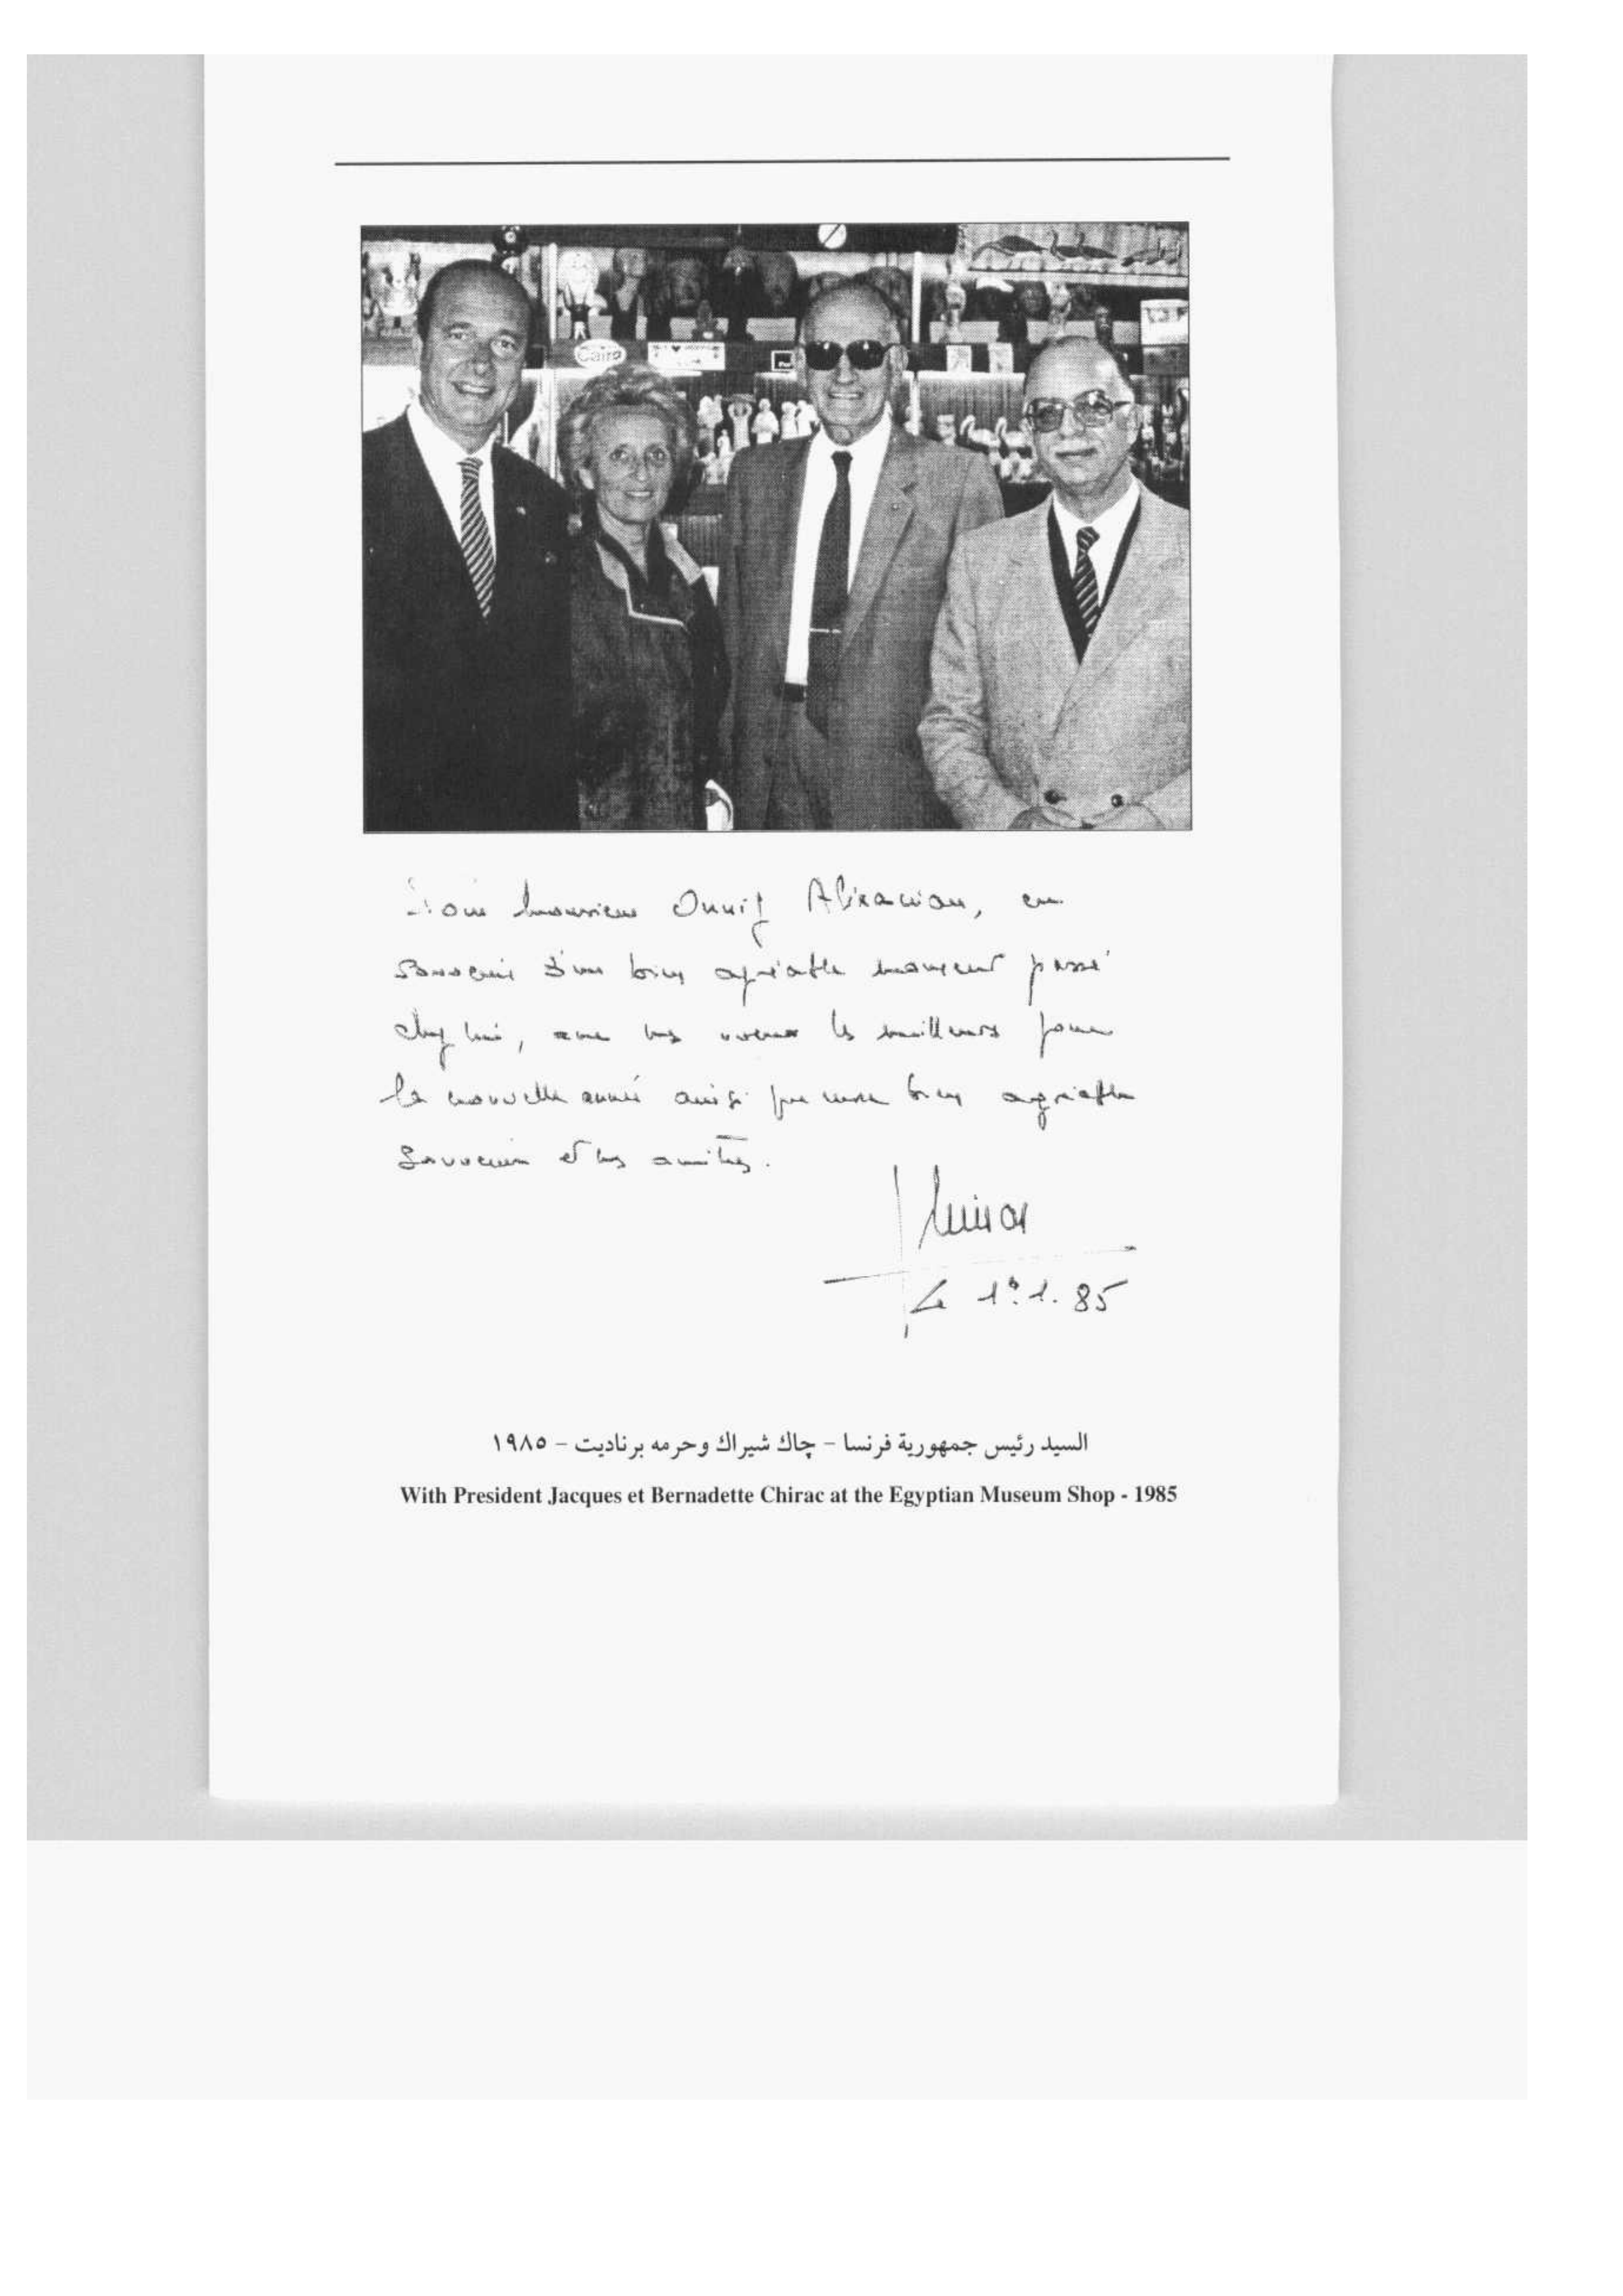 Cairo
Pour Monsieur Onnig Alixanian, en
souvenir d'un bien agréable moment passé
chez lui, avec mes voeux les meilleurs pour
la nouvelle année ainsi que mon bien agréable
souvenir et mes amitiés.
Chirac
Le 1º.1.85
السيد رئيس جمهورية فرنسا - چاك شيراك وحرمه برناديت - ١٩٨٥
With President Jacques et Bernadette Chirac at the Egyptian Museum Shop - 1985